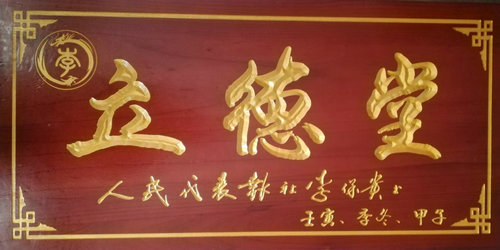 李
立德堂
人民代表報社李保贵书
壬寅、季冬、甲子